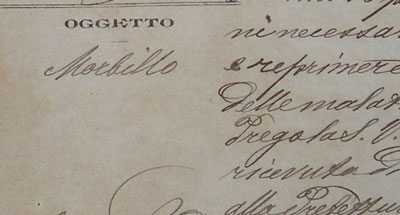 OGGETTO
Morbillo
ni necessar
e reprimere
delle malat
Prego la S. V.
ricevuta d
alla Prefettur